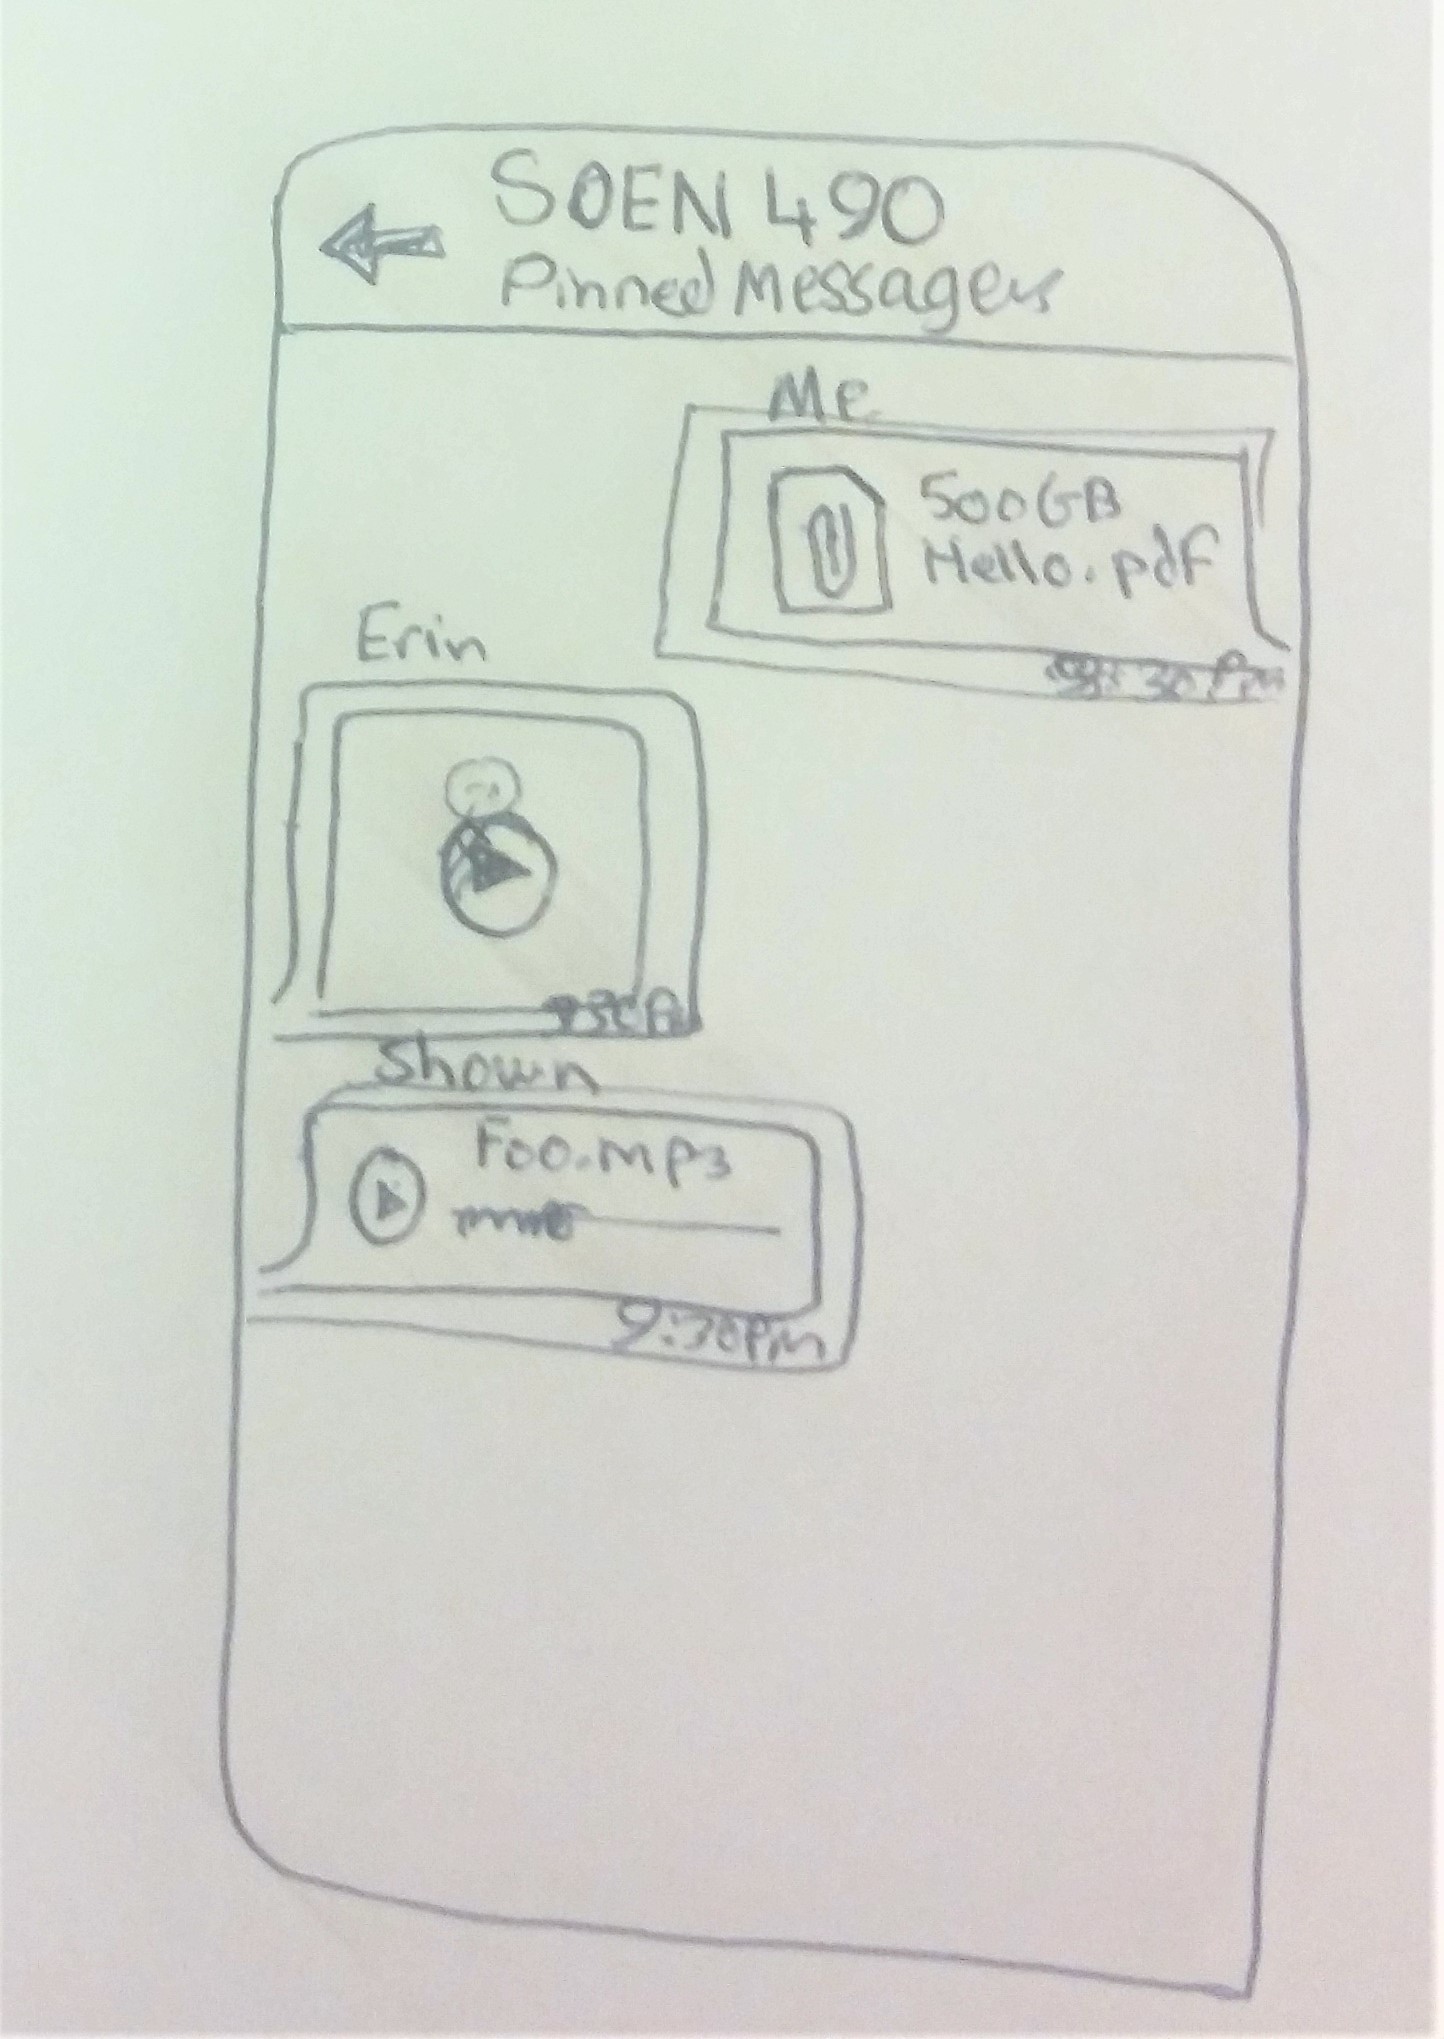 SOEN 490
Pinned Messages
Me
500GB
Hello.pdf
Erin
Shown
Foo.mp3
9:30Pm